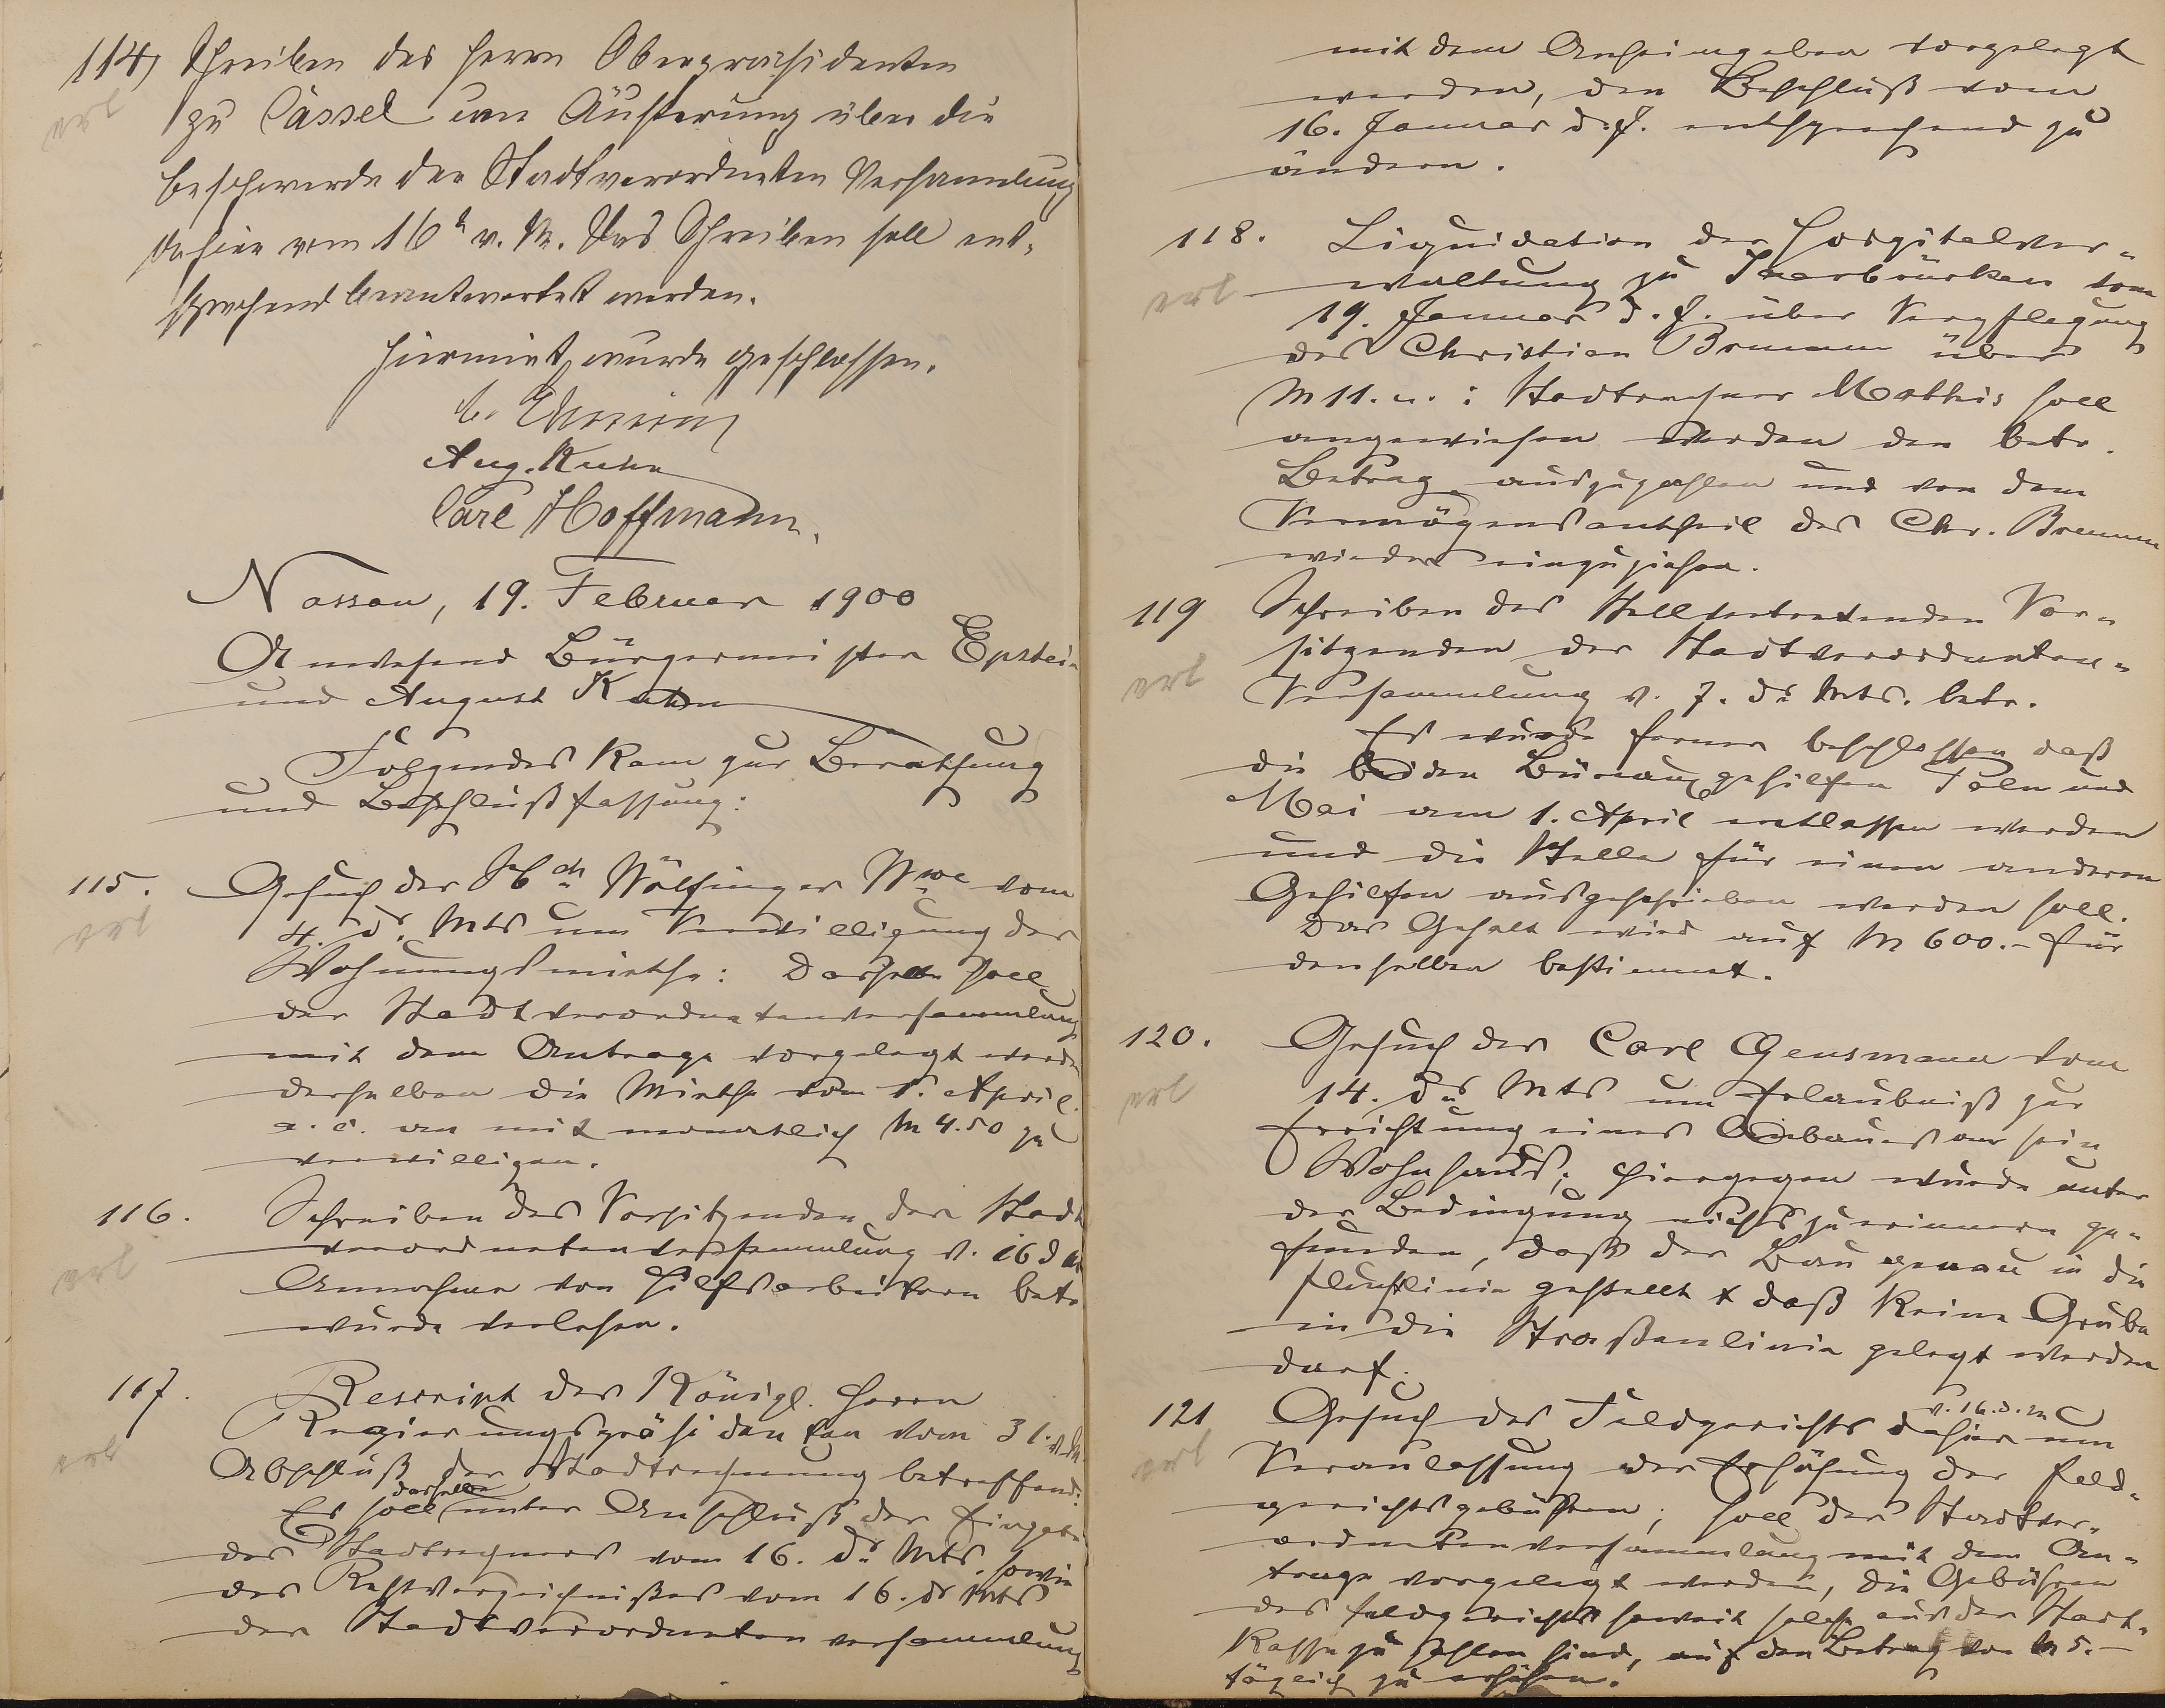 114, Schreiben des Herrn Oberpräsidenten
erl
zu Cassel um Äußerung über die
Beschwerde der Stadtverordneten Versammlung
dahier vom 16t v. M. Das Schreiben soll ent-
sprechend beantwortet werden.
Hiermit wurde geschlossen.
Aug. Kuhn
Carl Hoffmann.
Nassau, 19. Februar 1900
Anwesend Bürgermeister Epstein
und August Kuhn
Folgendes kam zur Berathung
und Beschlußfassung:
115. Gesuch der Wwe vom
erl
4. ds. Mts um Verwilligung der
Wohnungsmiethe: Dasselbe soll
der Stadtverordnetenversammlung
mit dem Antrage vorgelegt werde
derselben die Miethe vom 1. April
a. c. an mit monatlich M 4.50 zu
verwilligen.
116. Schreiben des Vorsitzenden der Stadt
verordnetenversammlung v. 16 d M
erl
Annahme von Hilfsarbeitern betr.
wurde verlesen.
117. Rescript des Königl. Herrn
Regierungspräsidenten vom 31. v. M.
erl
Abschluß der Stadtrechnung betreffend:
Es soll dasselbe unter Anschluß der Eingabe
des Stadtrechners vom 16. ds Mts. sowie
des Restverzeichnißes vom 16. ds Mts
der Stadtverordnetenversammlung
mit dem Anheimgeben vorgelegt
werden, den Beschluß vom
16. Januar d. J. entsprechend zu
ändern.
118. Liquidation der Hospitalver-
waltung zu Saarbrücken vom
erl
19. Januar d. J. über Verpflegung
des Christian über
M 11. : Stadtrechner Mathis soll
angewiesen werden den betr.
Betrag auszuzahlen und von dem
Vermögensantheil des Chr.
wieder einzuziehen.
119 Schreiben des Stellvertretenden Vor-
sitzenden der Stadtverordneten-
erl
Versammlung v. 7. ds Mts. betr.
Es wurde ferner beschlossen daß
die beiden Büraugehilfen und
Mai am 1. April entlassen werden
und die Stelle für einen anderen
Gehilfen ausgeschrieben werden soll.
Das Gehalt wird auf M 600.- für
denselben bestimmt.
120. Gesuch des Carl Gensmann vom
14. ds Mts um Erlaubniß zur
erl
Errichtung eines Anbaues an sein
Wohnhaus; hiergegen wurde unter
der Bedingung nichts zu erinnern ge-
funden, daß der Bau genau in die
Fluchtlinie gestellt & daß keine Grube
in die Straßenlinie gelegt werden
darf.
121 Gesuch des Feldgerichts dahier v. 16. d. M um
erl
Veranlassung der Erhöhung der Feld-
gerichtsgebühren; soll der Stadtver-
ordnetenversammlung mit dem An-
trage vorgelegt werden, die Gebühren
des Feldgerichts soweit solche aus der Stadt-
kasse zu zahlen sind, auf den Betrag von M 5.-
täglich zu erhöhen.